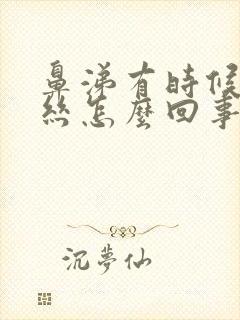 鼻涕有時候
絲怎麼回事
沉夢仙